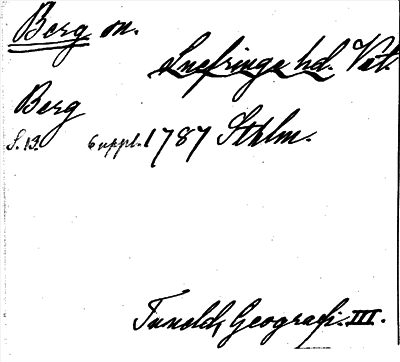 Berg sn.
Snefringe hd. Vstm.
Berg
S. 13. 6 uppl. 1787 Sthlm.
Tuneld, Geografi. III.